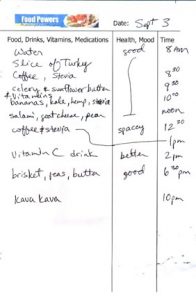 Food Powers Date: Sept 3
Food, Drinks, Vitamins, Medications Health, Mood Time
Water good 8 am
Slice of Turky
Coffee, Stevia 8 30
celery & sunflower butter 9 30
+ Vitamins
bananas, kale, hemp, stevia 10 30
salami, goat cheese, pear noon
coffee & stevia spacey 12 30
1pm
Vitamin C drink better 2 pm
brisket, peas, butter good 6 30 pm
Kava Kava 10pm